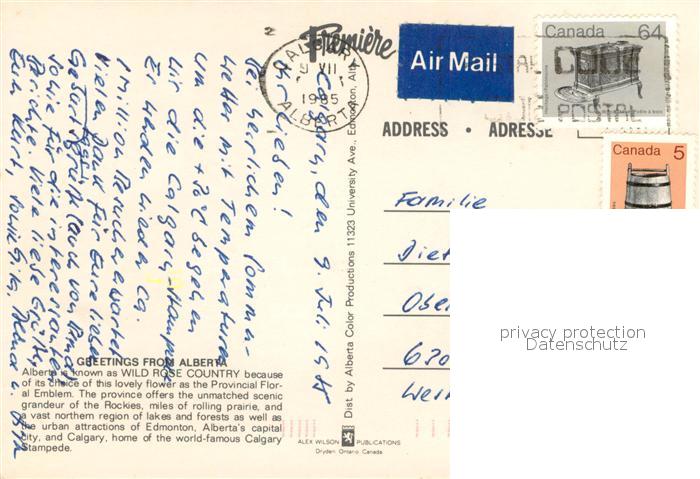 Première
Air Mail
Canada 64
CALGARY
9 VII
1985
ALBERTA
POSTAL
Canada 5
ADDRESS • ADRESSE
Familie
Calgary, den 9. Juli 1985
Ihr Lieben!
Bei herrlichem Sommer-
wetter mit Temperaturen
um die
wir die Calgary Stampede
Es werden wieder ca.
1 million Besucher erwartet
Vielen Dank für Eure lieben
sowie für die interessanten
Berichte. Viele liebe Grüße,
GREETINGS FROM ALBERTA
Alberta is known as WILD ROSE COUNTRY because
of its choice of this lovely flower as the Provincial Flor-
al Emblem. The province offers the unmatched scenic
grandeur of the Rockies, miles of rolling prairie, and
a vast northern region of lakes and forests as well as
the urban attractions of Edmonton, Alberta's capital
city, and Calgary, home of the world-famous Calgary
Stampede.
Dist by Alberta Color Productions 11323 University Ave., Edmonton, Alta
ALEX WILSON PUBLICATIONS
Dryden Ontario Canada
privacy protection
Datenschutz